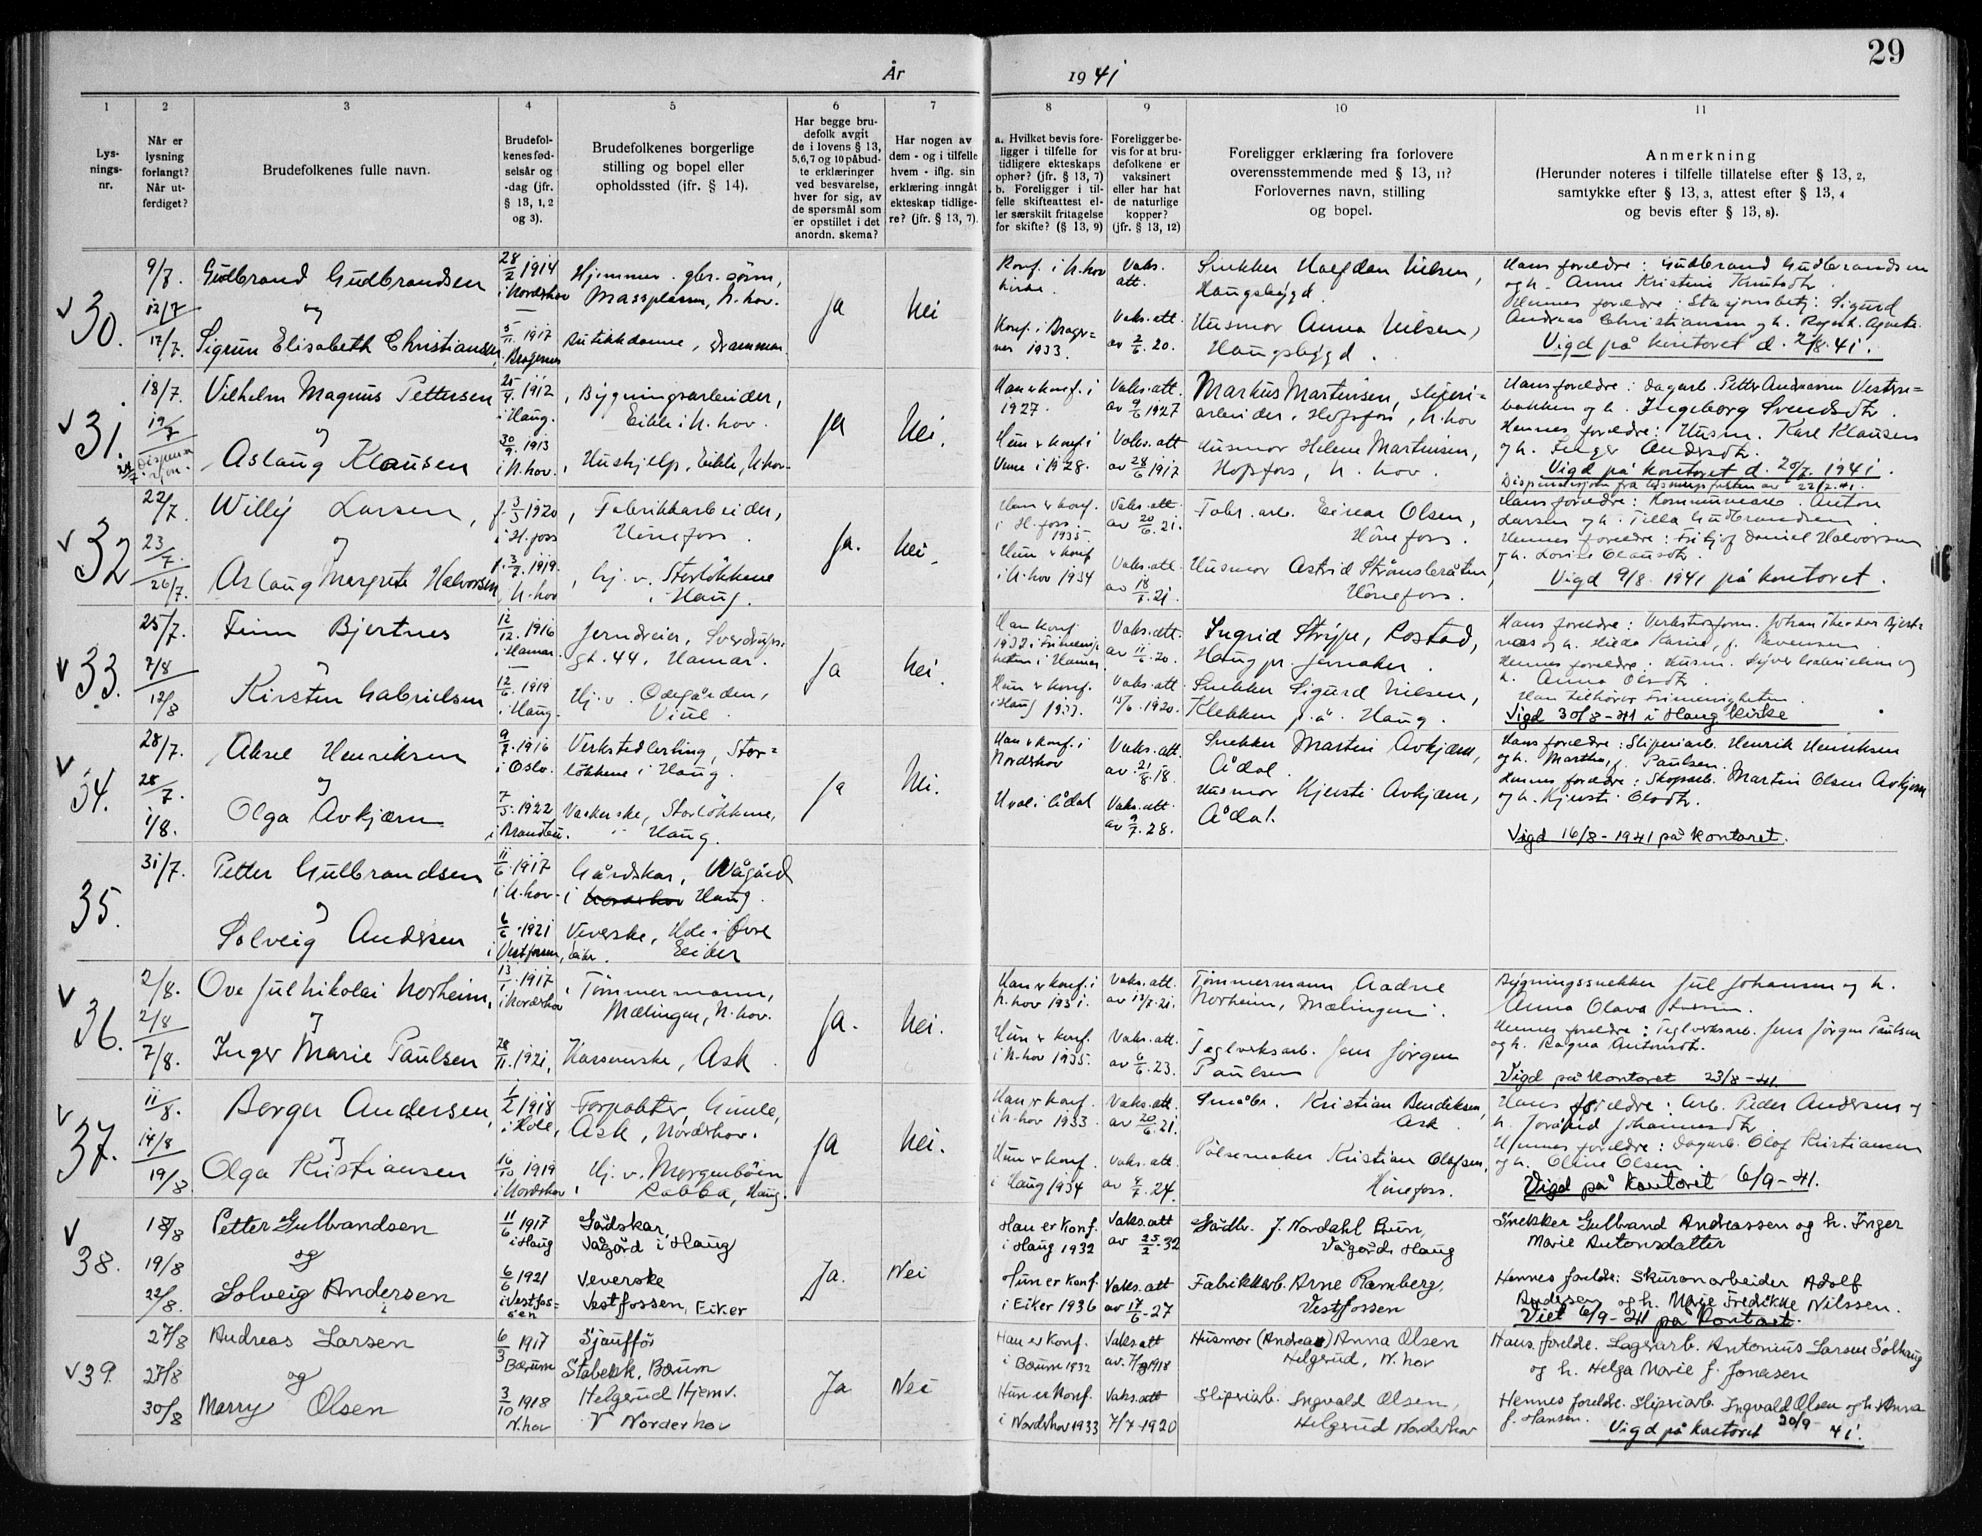 29
År
1941
1
2
3
4
5
6
7
8
9
10
11
Lys-
nings-
nr.
Når er
lysning
forlangt?
Når ut-
ferdiget?
Brudefolkenes fulle navn.
Brudefol-
kenes fød-
selsår og
-dag (jfr.
§ 13, 1, 2
og 3).
Brudefolkenes borgerlige
stilling og bopel eller
opholdssted (jfr. § 14).
Har begge bru-
defolk avgit
de i lovens § 13,
5,6,7 og 10 påbud-
te erklæringer
ved besvarelse,
hver for sig, av
de spørsmål som
er opstillet i det
anordn. skema?
Har nogen av
dem - og i tilfelle
hvem - iflg. sin
erklæring inngått
ekteskap tidlige-
re? (jfr. § 13, 7).
a. Hvilket bevis fore-
ligger i tilfelle for
tidligere ekteskaps
ophør? (jfr. § 13, 7)
b. Foreligger i til-
felle skifteattest el-
ler særskilt fritagelse
for skifte? (§ 13, 9)
Foreligger be-
vis for at bru-
defolkene er
vaksinert
eller har hat
de naturlige
kopper?
(jfr. § 13, 12)
Foreligger erklæring fra forlovere
overensstemmende med § 13, 11?
Forlovernes navn, stilling
og bopel.
Anmerkning
(Herunder noteres i tilfelle tillatelse efter § 13, 2,
samtykke efter § 13, 3, attest efter § 13, 4
og bevis efter § 13, 8).
v 30.
9/7
12/7
17/7.
Gudbrand Gudbrandsen
og
Sigrun Elisabeth Christiansen,
28/2 1914
i Nordrhov
5/11. 1917
Bragernes
Hjemmev. gbr. sønn,
Massplassen, N.hov.
Butikkdame, Drammen
Ja
Nei
Konf. i N.hov
kirke.
Konf. i Brager-
nes 1933.
Vaks.
att.
Vaks. att.
av 2/6. 20.
Snekker Halfdan Nilsen,
Haugsbygd.
Husmor Anna Nilsen,
Haugsbygd.
Hans foreldre: Gudbrand Gudbrandsen
og h. Anne Kristine Knutsdtr.
Hennes foreldre: Stasjonsbetj. Sigurd
Andreas Christiansen og h. Ragnh. Agnete.
Vigd på kontoret d. 2/8. 41.
v 31.
18/7.
19/7
24/7
Vilhelm Magnus Pettersen
og
Aslaug Klausen
25/4 1912
i Haug.
30/9 1913
i N.hov.
Bygningsarbeider,
Eikli i N.hov.
Hushjelp, Eikli, N.hov.
Ja
Nei.
Han er konf. i
1927.
Hun er konf. i
Veme i 1928.
Vaks. att.
av 9/6 1927
Vaks. att
av 28/6 1917
Markus Martinsen, sliperi-
arbeider, Hofsfoss, N.hov
Husmor Helene Martinsen,
Hofsfoss, N.hov.
Hans foreldre: Dagarb. Petter Andreassen Vestre-
bakken og h. Ingeborg Svendsdtr.
Hennes foreldre: Husm. Karl Klausen
og h. Inger Andersdtr.
Vigd på kontoret d. 20/7. 1941.
v 32
22/7.
23/7.
26/7.
Willy Larsen,
og
Aslaug Margrete Halvorsen
f. 3/3 1920
i H.foss
f. 3/7. 1919.
i N.hov
Fabrikkarbeider,
Hönefoss.
hj. v. Storløkkene
i Haug.
Ja.
Nei.
Han er konf.
i H.foss.
1935.
Hun er konf
i N.hov 1934
Vaks. att.
av 20/6. 21.
Vaks. att.
av 18/7. 21.
Fabr. arb. Einar Olsen,
Hönefoss.
Husmor Astrid Strømsbråten,
Hönefoss.
Dispensasjon fra lysningsfristen av 22/7. 41.
Hans foreldre: Kommunearb. Anton
Larsen og h. Tilla Gudbrandsen.
Hennes foreldre: Fritjof Daniel Halvorsen
og h. Lovise Olausdtr.
Vigd 9/8. 1941 på kontoret.
v 33.
25/7.
7/8
12/8
Finn Bjertnes
og
Kirsten Gabrielsen
12/12. 1916
i Hamar.
12/6. 1919
i Haug.
Jerndreier, Sverdrups
gt. 44, Hamar.
Hj. v. Ødegården,
Viul.
Ja
Nei.
Han konf.
1932 i Frimenig-
heten i Hamar
Hun er konf.
i Haug 1933.
Vaks. att.
av 11/6. 20.
Vaks. att.
15/6. 1920.
Ingrid Strype, Rostad,
Haug pr. Jevnaker.
Snekker Sigurd Nilsen,
Klekken p.å. Haug.
Han tilhører frimenigheten.
Vigd 30/8 - 41 i Haug kirke
v 34.
28/7.
28/7.
1/8.
Aksel Henriksen
og
Olga Avkjærn
9/7. 1916
i Oslo.
7/5. 1922
i Brandbu.
Verkstedlærling, Stor-
løkkene i Haug.
Vaskerske, Storløkkene,
Haug.
Ja
Nei.
Han er konf. i
Nordrhov
Ådal
Vaks. att.
av 21/8. 18.
Vaks. att.
av 9/7. 28.
Snekker Martin Avkjærn,
Ådal.
Husmor Kjersti Avkjærn,
Ådal.
Hans foreldre: Sliperiarb. Henrik Henriksen
og h. Martha, f. Paulsen.
Hennes foreldre: Skogsarb. Martin Olsen Avkjern
og h. Kjersti Olsdtr.
Vigd 16/8 - 1941 på kontoret.
35.
31/7.
Petter Gulbrandsen
og
Solveig Andersen
11/6. 1917
i N.hov.
6/6. 1921
i Vestfossen, Eiker.
Gårdskar, Vågård
i Norderhov Haug.
Veverske, Hde i Øvre
Eiker
v 36.
2/8.
2/8
7/8.
Ove Jul Nikolai Norheim,
og
Inger Marie Paulsen
13/1. 1917
i Nordrhov
28/11. 1921,
Tømmermann,
Mælingen, N.hov.
Kassererske, Ask
Ja.
Nei.
Han er konf. i
N.hov 1931.
Hun er konf.
i N.hov 1935.
Vaks. att.
av 13/7. 21.
Vaks. att.
av 6/6. 23.
Tømmermann Aadne
Norheim, Mælingen.
Teglverksarb. Jens Jörgen
Paulsen
Bygningssnekker Jul Johansen og h.
Anna Olava
Hennes foreldre: Teglverksarb. Jens Jörgen Paulsen
og h. Ragna Antonsdtr.
Vigd på kontoret 23/8 - 41.
v 37.
11/8.
14/8
19/8
Borger Andersen,
og
Olga Kristiansen
1/2 1918
i Hole,
16/10 1919
i Nordrhov
Forpakter, Gunle,
Ask, Nordrhov.
Hj. v. Morgenbøien
Rabba, Haug.
Ja
Nei.
Han er konf.
i N.hov 1933
Hun er konf.
i Haug 1934
Vaks. att.
av 20/6. 21.
Vaks. att.
av 4/7. 24.
Småbr. Kristian Bendiksen,
Ask
Pölsemaker Kristian Olafsen,
Hönefoss.
Hans foreldre: Arb. Peder Andersen og
h. Jorand Johannesdtr
Hennes foreldre: Dagarb. Olof Kristiansen
og h. Oline Olsen.
Vigd på kontoret 6/9 - 41.
v 38.
18/8
19/8
22/8.
Petter Gulbrandsen
og
Solveig Andersen
11/6 1917
i Haug
6/6 1921
i Vestfos-
sen
Gårdskar,
Vågård i Haug
Veverske
Vestfossen, Eiker
Ja.
Nei
Han er konf.
i Haug 1932
Hun er konf.
i Eiker 1936
Vaks. att
av 25/2 - 32
Vaks. att
av 17/6 - 27
Gårdbr. J. Nordahl Brun,
Vågård, Haug
Fabrikkarb. Arne Ramberg,
Vestfossen
Snekker Gulbrand Andreassen og h. Inger
Marie Antonsdatter
Hennes forelde: Skurarbeider Adolf
Andersen og h. Marie Fredikke Nilssen.
Viet 6/9 - 41 på kontoret.
v 39.
27/8
27/8
30/8
Andreas Larsen
og
Merry Olsen
6/3 1917
Bærum
3/10 1918
N.hov
Sjauffør
Stabekk, Bærum
Helgerud Hjemv.
Norderhov
Ja
Nei
Han er konf.
i Bærum 1932
Hun er konf.
i Nordrhov 1933
Vaks. att
av. 7/8 1918
Vaks. att
7/7 - 1920
Husmor (Andrea) Anna Olsen
Helgerud, N.hov
Slipriarb. Ingvald Olsen,
Helgerud Norderhov
Hans forelde. Lagerarb. Antonius Larsen Solhaug
og h. Helga Marie f. Jonasen
Hennes forelde. Slipriarb. Ingvald Olsen og h. Anna
f. Hansen.
Vigd på kontoret 20/9 41.